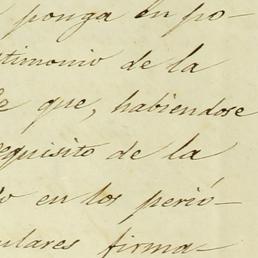 ponga en po-
timonio de la
que, habiendose
equisito de la
o en los perió-
ulares firma-